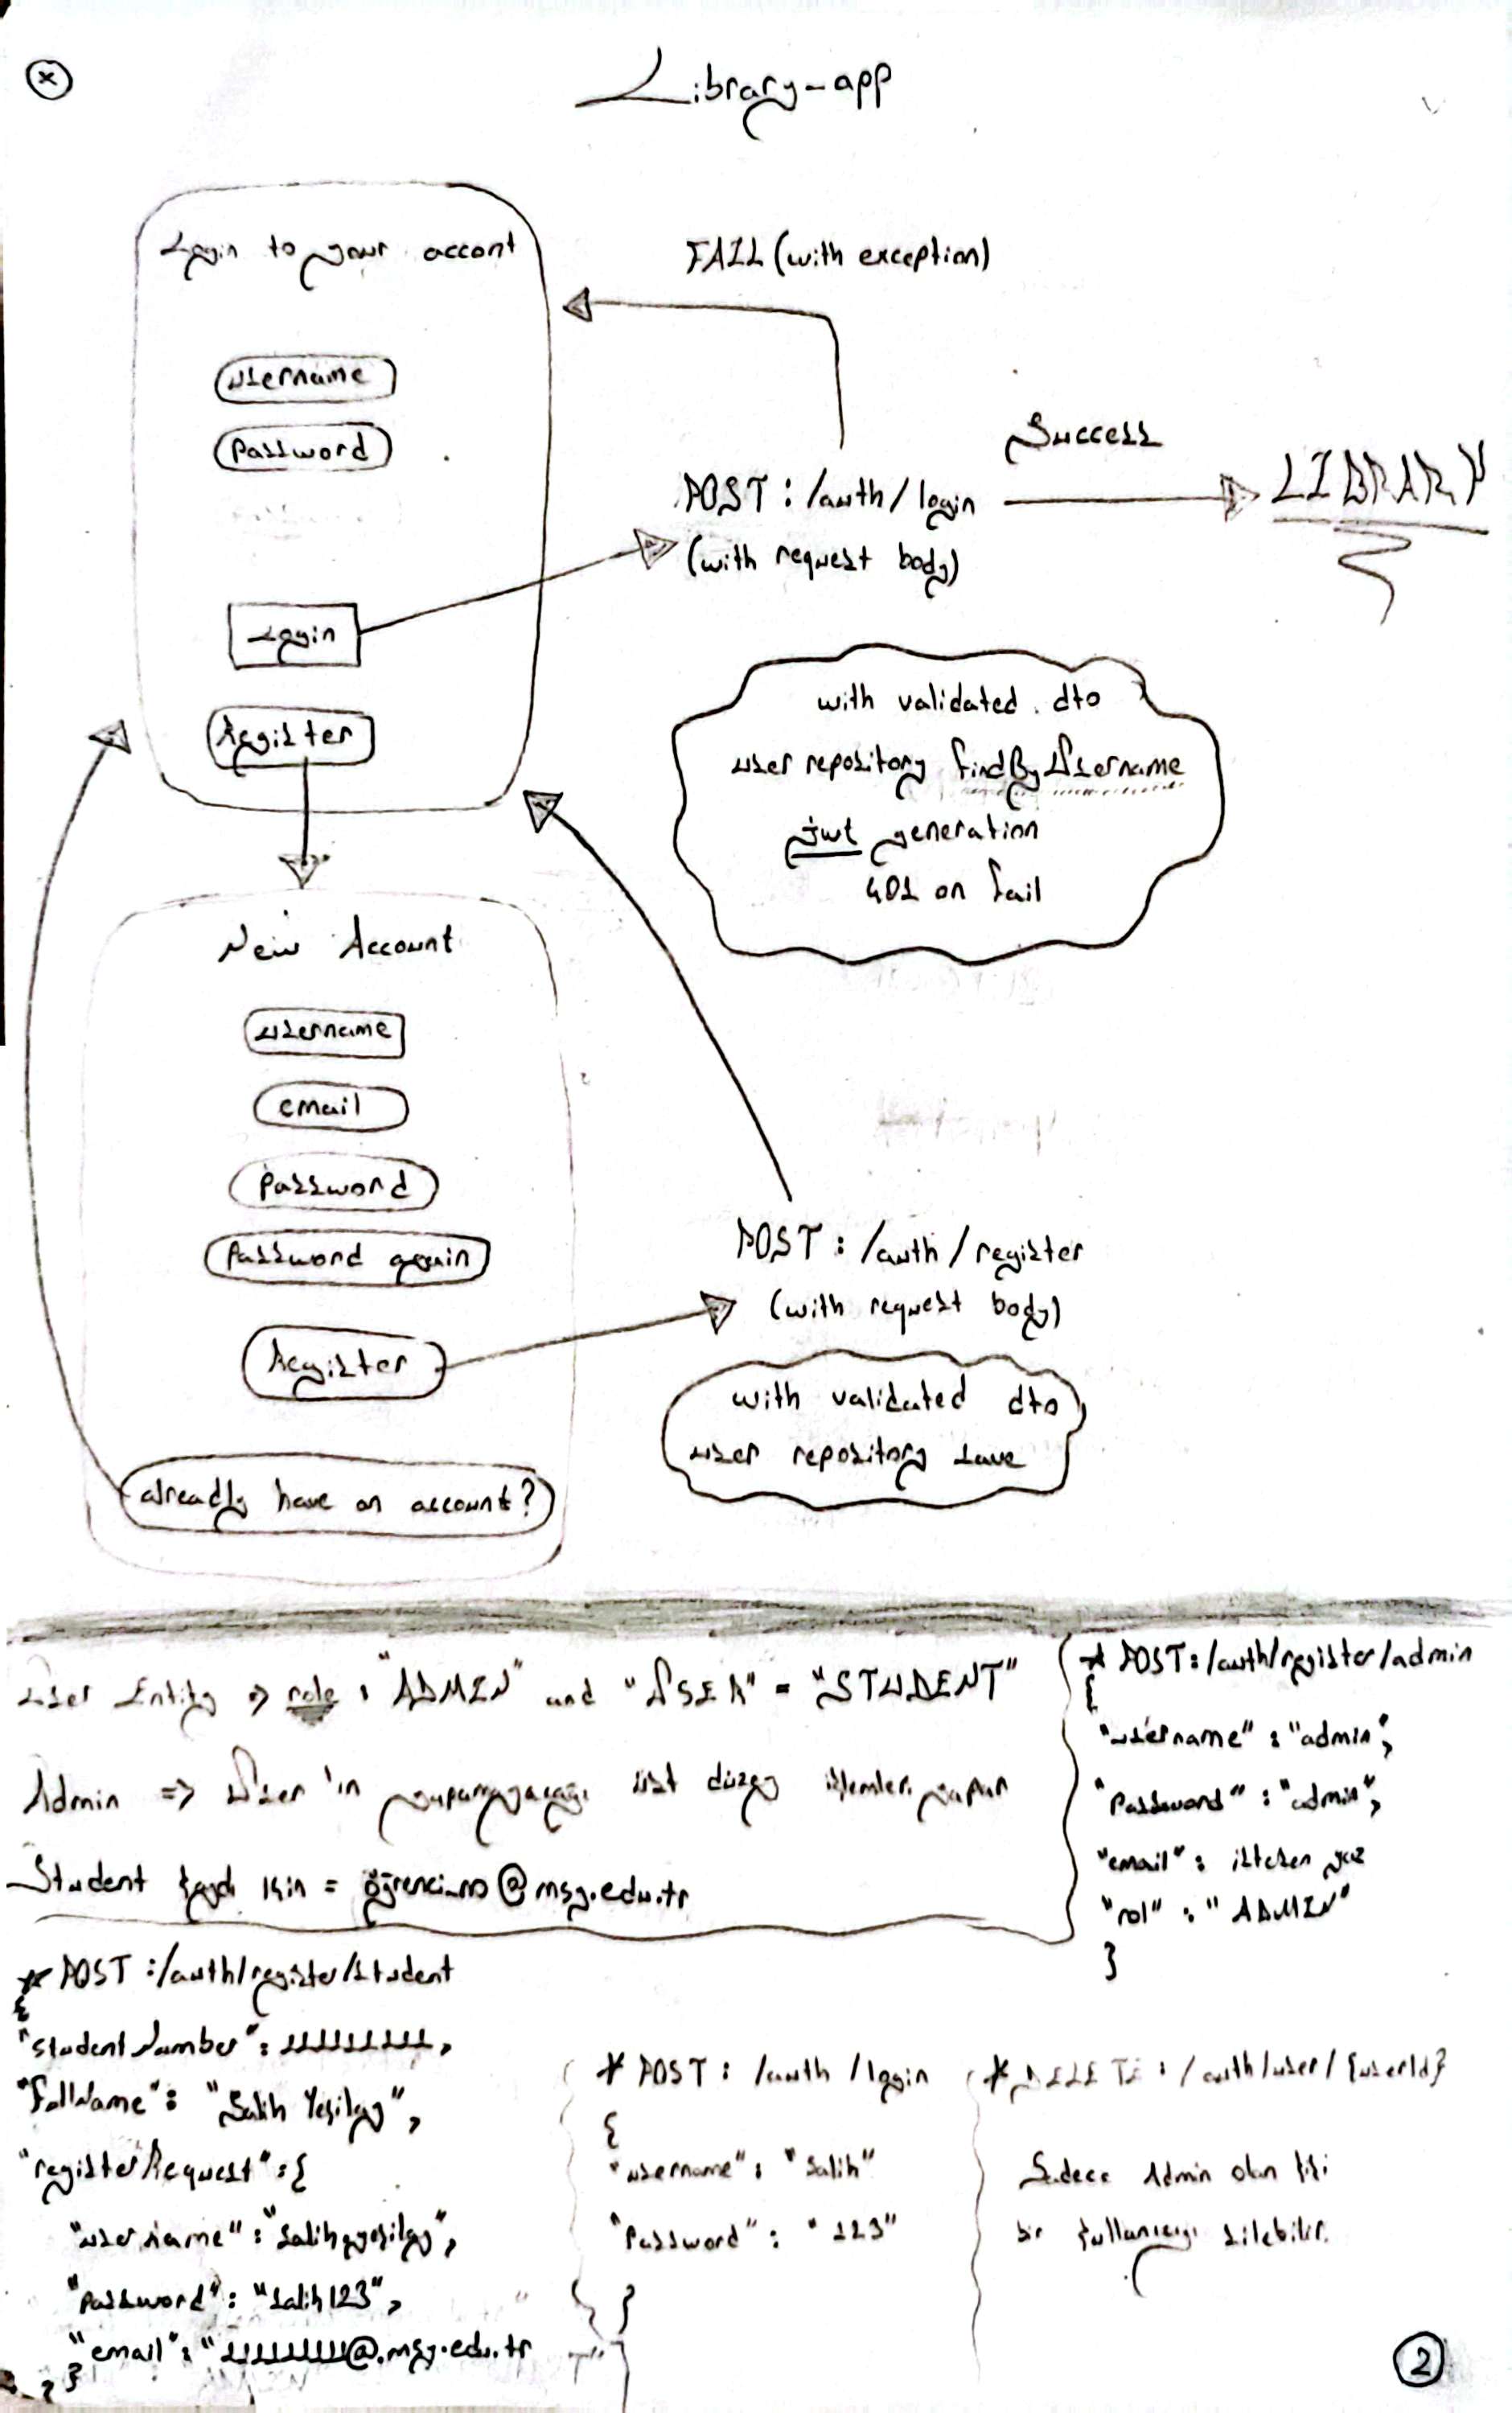 x
Library-app
Login to your accont
username
password
Login
Register
FAIL (with exception)
POST : /auth/login
(with request body)
Success
LIBRARY
with validated dto
user repository findByUsername
jwt generation
401 on fail
New Account
username
email
password
password again
Register
already have an account?
POST : /auth/register
(with request body)
with validated dto
user repository save
User Entity => role : "ADMIN" and "USER" = "STUDENT"
Admin => User 'ın yapamayacağı üst düzey işlemleri yapar
Student kaydı için = öğrenci_no@msgy.edu.tr
* POST : /auth/register/admin
{
"username" : "admin",
"password" : "admin",
"email" : istesen yaz
"rol" : "ADMIN"
}
* POST : /auth/register/student
{
"studentNumber" : 111111111,
"fullName" : "Salih Yeşilay",
"registerRequest" : {
"username" : "salihyesilay",
"password" : "salih123",
"email" : "111111111@.msgy.edu.tr
}
}
* POST : /auth/login
{
"username" : "Salih"
"password" : "123"
}
* DELETE : /auth/user/{userId}
Sadece Admin olan kişi
bir kullanıcıyı silebilir.
2